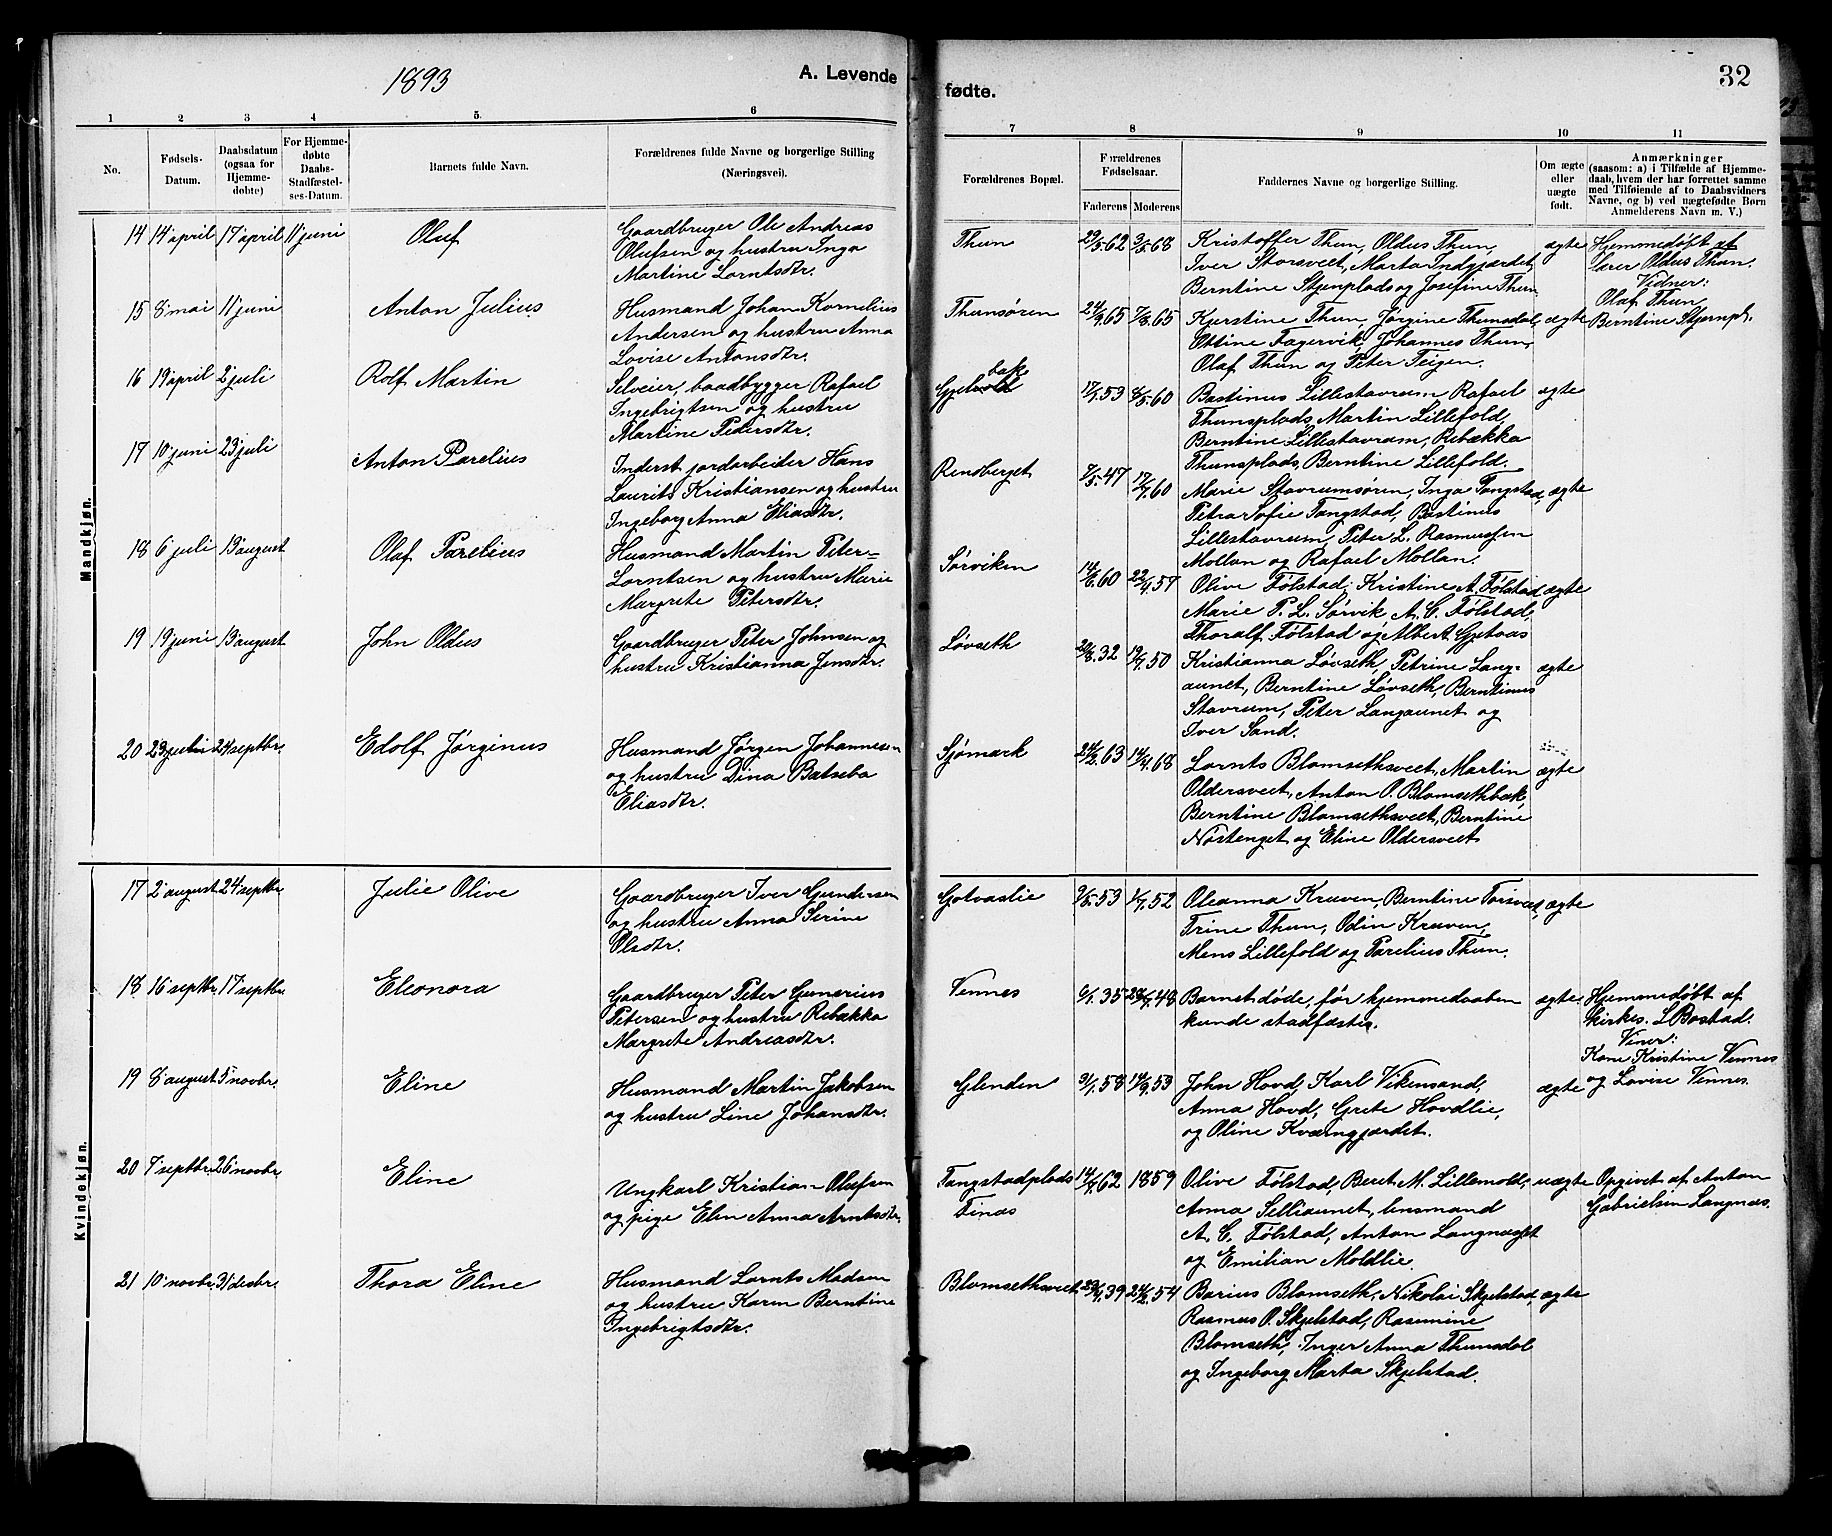 1893
A. Levende
fødte.
32
1
2
3
4
5.
6
7
8
9
10
11
No.
Fødsels-Datum.
Daabsdatum (ogsaa for Hjemmedøbte)
For Hjemmedøbte Daabs-Stadfæstelses-Datum.
Barnets fulde Navn.
Forældrenes fulde Navne og borgerlige Stilling
(Næringsvei).
Forældrenes Bopæl.
Forældrenes Fødselsaar.
Faderens
Moderens
Faddernes Navne og borgerlige Stilling.
Om ægte eller uægte født.
Anmærkninger
(saasom: a) i Tilfælde af Hjemme-
daab, hvem der har forrettet samme
med Tilføiende af to Daabsvidners
Navne, og b) ved uægtefødte Børn
Anmelderens Navn m. V.)
Mandkjøn.
14 14 april 17 april 11 juni Oluf
Gaardbruger Ole Andreas
Olufsen og hustru Inga
Martine Lorntsdtr.
Thun 29/5.62 3/5.68
Kristoffer Thun, Oldus Thun,
Iver Storsveet, Marta Indgjærdet,
Berntine Stjernplads og Josefine Thun
ægte
Hjemmedøbt af
lærer Oldus Thun.
Vidner:
Olaf Thun
Berntine Stjernpl.
15 8 mai 11 juni Anton Julius
Husmand Johan Kornelius
Andersen og hustru Anna
Lovise Antonsdtr.
Thunsøren 24/9.65 7/8.65
Kjerstine Thun, Jørgine Thunsdal,
Ottine Fagervik, Johannes Thun,
Olaf Thun og Peter Teigen.
ægte
16 19 april 2 juli Rolf Martin
Selveier, baadbygger Rafael
Ingebrigtsen og hustru
Martine Pedersdtr.
bak
17/1.53 4/5.60
Bastinus Lillestavrum Rafael
Thunsplads, Martin Lillefold,
Berntine Lillestavrum, Rebækka
Thunsplads, Berntine Lillefold.
ægte
17 10 juni 23 juli Anton Parelius
Inderst jordarbeider Hans
Laurits Kristiansen og hustru
Ingeborg Anna Eliasdtr.
Rendberget 7/5.47 17/7.60
Marie Stavrumsøren, Inga Tangstad,
Petra Sofie Tangstad, Bastinus
Lillestavrum, Peter L. Rasmussen
Mollan og Rafael Mollan.
ægte
18 6 juli 13 august Olaf Parelius
Husmand Martin Peter=
Lorntsen og hustru Marie
Margrete Petersdtr.
Sørviken 14/6.60 22/4.57
Olive Følstad, Kristine A. Følstad
Marie P. L. Sørvik, A. C. Følstad,
Thoralf Følstad og Albert Gjetvas
ægte
19 19 juni 13 august John Oldus
Gaardbruger Peter Johnsen og
hustru Kristianna Jensdtr.
Løvseth 20/8.32 19/7.50
Kristianna Løvseth, Petrine Lang-
aunet, Berntine Løvseth, Berntinus
Stavrum, Peter Langaunet og
Iver Sand.
ægte
20 23 juli 24 septbr. Edolf Jørginus
Husmand Jørgen Johannesen
og hustru Dina Batseba
Eliasdtr.
Sjømark 24/2.63 14/4.68
Lornts Blomsethsveet, Martin
Oldersveet, Anton O. Blomsethbak,
Berntine Blomsethsveet, Berntine
Nostenget og Eline Oldersveet
ægte
Kvindekjøn.
17 2 august 24 septbr. Julie Olive
Gaardbruger Iver Gundersen
og hustru Anna Serine
Olsdtr.
Gotvaslie 9/5.53 1/7.52
Oleanna Kruven, Berntine Torsveet,
Trine Thun, Odin Kruven,
Mens Lillefold og Parelius Thun.
ægte
18 16 septbr. 17 septbr. Eleonora
Gaardbruger Peter Gunerius
Petersen og hustru Rebækka
Margrete Andreasdtr.
Vennes 6/1.35 28/7.48
Barnet døde, før hjemmedaaben
kunde stadfæstes.
ægte.
Hjemmedøbt af
kirkes. L. Bostad.
Viner:
Kone Kristine Vennes
og Lovise Vennes.
19 8 august 5 novbr. Eline
Husmand Martin Jakobsen
og hustru Line Johansdtr.
Glenden 9/1.58 14/9.53
John Hovd, Karl Vikensand,
Anna Hovd, Grete Hovdlie,
og Oline Kværngjærdet.
ægte
20 7 septbr. 26 novbr. Eline
Ungkarl Kristian Olufsen
og pige Elen Anna Arntsdtr.
Tangstadplads
Finæs
14/7.62 1859
Olive Følstad, Beret M. Lillemold,
Anna Selliaunet, lensmand
A. C. Følstad, Anton Langnæset
og Emilian Moldlie.
uægte
Opgivet af Anton
Gabrielsen Langnæs.
21 10 novbr. 31 decbr. Thora Eline
Husmand Lornts Madsen
og hustru Karen Berntine
Ingebrigtsdtr.
Blomsethsveet 23/4.39 24/2.54
Barius Blomseth, Nikolai Skjelstad,
Rasmus O. Skjelstad, Rasmine
Blomseth, Inger Anna Thunsdal
og Ingeborg Marta Skjelstad.
ægte